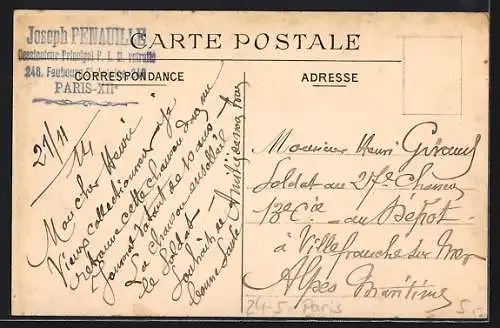 Joseph PENAUILLE
Dessinateur Principal P. L. M. retraité
248, Faubourg St-Antoine, 248
PARIS-XIIe
CARTE POSTALE
CORRESPONDANCE
ADRESSE
21/11/14
Mon cher Henri
Vieux collectionneur je
retrouve cette chanson dans un
journal datant de 10 ans
La chanson ensoleille
le Soldat
Souhait de
bonne Santé
Amitiés de nous tous
Monsieur Henri Giraud
Soldat au 27e Chasseurs
13e Cie au Dépôt
à Villefranche sur Mer
Alpes Maritimes
24-5 Paris
S.-